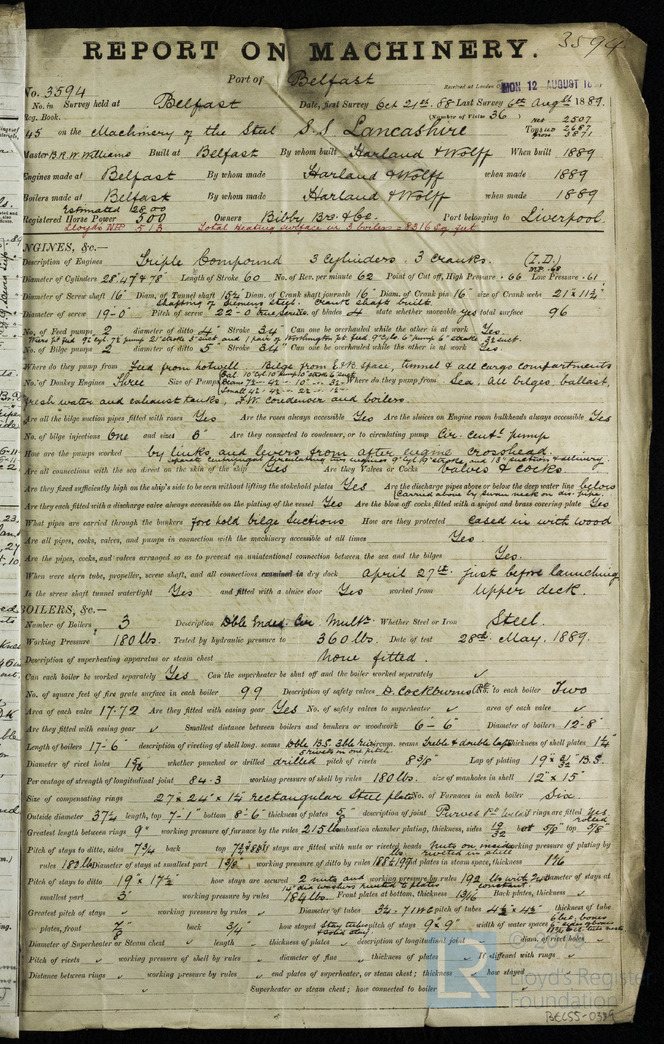 REPORT ON MACHINERY. 3594
Port of Belfast
No. 3594 Received at London Office MON 12 AUGUST 18
No. in Survey held at Belfast Date, first Survey Oct 21st. 88 Last Survey 6th Augst 1889.
Reg. Book. (Number of Visits 36)
45 on the Machinery of the Steel S.S. Lancashire Tons 2507 2687 3871
Master B.R.W. Williams Built at Belfast By whom built Harland & Wolff When built 1889
Engines made at Belfast By whom made Harland & Wolff when made 1889
Boilers made at Belfast By whom made Harland & Wolff when made 1889
Estimated 2800
Registered Horse Power 500 Owners Bibby Bros. & Co. Port belonging to Liverpool
Lloyds NHP 513 Total Heating surface in 3 boilers = 8316 sq. feet
NGINES, &c.—
Description of Engines Triple Compound 3 cylinders. 3 cranks.
Diameter of Cylinders 28" 47" & 78" Length of Stroke 60 No. of Rev. per minute 62 Point of Cut off, High Pressure .66 Low Pressure .61
Diameter of Screw shaft 16" Diam. of Tunnel shaft 15¼ Diam. of Crank shaft journals 16" Diam. of Crank pin 16" size of Crank webs 21 × 11½"
Shafting of Siemens steel. Crank shaft built.
Diameter of screw 19-0" Pitch of screw 22-0" No. of blades 4 state whether moveable yes total surface 96
No. of Feed pumps 2 diameter of ditto 4" Stroke 34" Can one be overhauled while the other is at work Yes.
No. of Bilge pumps 2 diameter of ditto 5" Stroke 34" Can one be overhauled while the other is at work Yes
Where do they pump from Feed from hotwell. Bilge from E & B space, tunnel & all cargo compartments
No. of Donkey Engines Three Size of Pumps Where do they pump from Sea, all bilges, ballast,
fresh water and exhaust tanks, F.W. Condenser and boilers.
Are all the bilge suction pipes fitted with roses Yes Are the roses always accessible Yes Are the sluices on Engine room bulkheads always accessible Yes
No. of bilge injections One and sizes 8" Are they connected to condenser, or to circulating pump Cir. centl. pump
How are the pumps worked by links and levers from after engine crosshead.
Are all connections with the sea direct on the skin of the ship Yes Are they Valves or Cocks valves & cocks
Are they fixed sufficiently high on the ship's side to be seen without lifting the stokehold plates Yes Are the discharge pipes above or below the deep water line below
(Carried above by swan neck on dis. pipe.
Are they each fitted with a discharge valve always accessible on the plating of the vessel Yes Are the blow off cocks fitted with a spigot and brass covering plate Yes
What pipes are carried through the bunkers fore hold bilge suctions How are they protected cased in with wood
Are all pipes, cocks, valves, and pumps in connection with the machinery accessible at all times Yes.
Are the pipes, cocks, and valves arranged so as to prevent an unintentional connection between the sea and the bilges Yes.
When were stern tube, propeller, screw shaft, and all connections examined in dry dock April 27th just before launching
Is the screw shaft tunnel watertight Yes and fitted with a sluice door Yes worked from Upper deck.
BOILERS, &c.—
Number of Boilers 3 Description Dble Ended. Cir. Multr. Whether Steel or Iron Steel.
Working Pressure 180 lbs. Tested by hydraulic pressure to 360 lbs. Date of test 28th May. 1889.
Description of superheating apparatus or steam chest None fitted.
Can each boiler be worked separately Yes Can the superheater be shut off and the boiler worked separately ✓
No. of square feet of fire grate surface in each boiler 99 Description of safety valves D. Cockburns No. to each boiler Two
Area of each valve 17.72 Are they fitted with easing gear Yes No. of safety valves to superheater ✓ area of each valve ✓
Are they fitted with easing gear ✓ Smallest distance between boilers and bunkers or woodwork 6-6" Diameter of boilers 12-8"
Length of boilers 17-6" description of riveting of shell long. seams Dble B.S. 3ble riv. circum. seams Treble & double laps thickness of shell plates 1¼
Diameter of rivet holes 1 5/16 whether punched or drilled drilled pitch of rivets 8⅝" Lap of plating 19 × B.S.
Per centage of strength of longitudinal joint 84.3 working pressure of shell by rules 180 lbs. size of manholes in shell 12" × 15"
Size of compensating rings 27 × 24" × 1¼ rectangular Steel plate No. of Furnaces in each boiler Six
Outside diameter 37¼ length, top 7-1" bottom 8-6" thickness of plates description of joint Purves if rings are fitted Yes
Greatest length between rings 9" working pressure of furnace by the rules 215 lbs combustion chamber plating, thickness, sides 19/32 back 5/8" top 5/8"
Pitch of stays to ditto, sides 7¾ back top If stays are fitted with nuts or riveted heads Nuts on inside riveted in plate working pressure of plating by
rules 183 lbs Diameter of stays at smallest part working pressure of ditto by rules end plates in steam space, thickness 1 1/16
Pitch of stays to ditto 19" × 17½" how stays are secured 2 nuts and working pressure by rules 192 lbs with diameter of stays at
14" dia washers riveted to plates constant.
smallest part 3" working pressure by rules 184 lbs. Front plates at bottom, thickness 13/16 Back plates, thickness ✓
Greatest pitch of stays ✓ working pressure by rules ✓ Diameter of tubes 3¼ pitch of tubes 4½ × 4½" thickness of tube
plates, front 7/8 back 3/4" how stayed Stay tubes pitch of stays 9" × 9" width of water spaces
Diameter of Superheater or Steam chest ✓ length thickness of plates ✓ description of longitudinal joint diam. of rivet holes
Pitch of rivets ✓ working pressure of shell by rules ✓ diameter of flue ✓ thickness of plates ✓ If stiffened with rings ✓
Distance between rings ✓ working pressure by rules ✓ end plates of superheater, or steam chest; thickness ✓ how stayed
Superheater or steam chest; how connected to boiler
LR
Lloyd's Register
Foundation
BEL55-0379